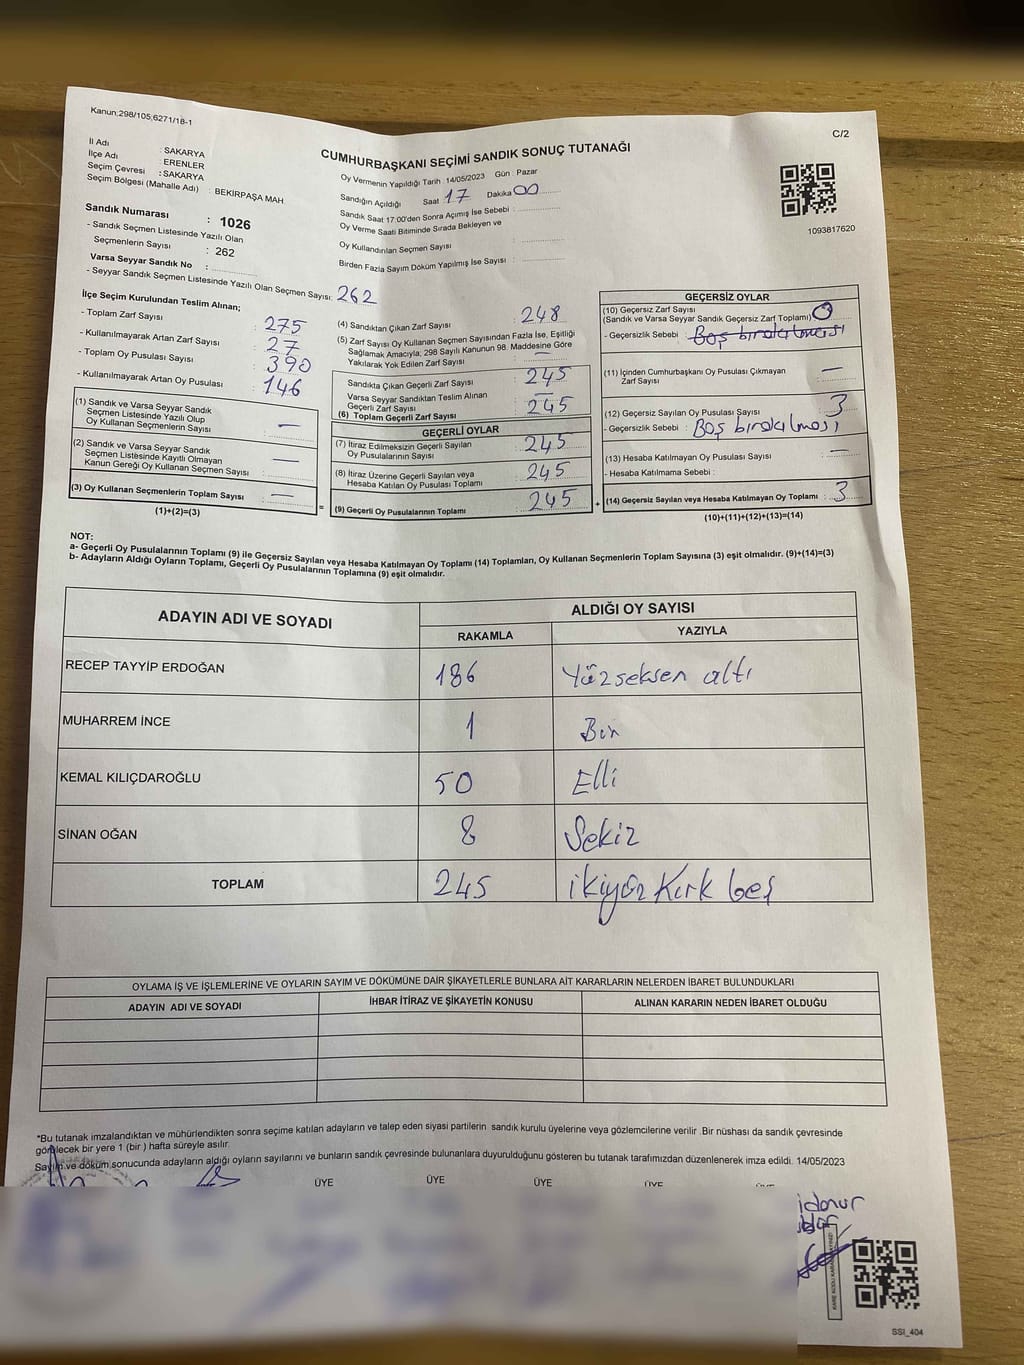 Kanun;298/105;6271/18-1
C/2
CUMHURBAŞKANI SEÇİMİ SANDIK SONUÇ TUTANAĞI
İl Adı : SAKARYA
İlçe Adı : ERENLER
Seçim Çevresi : SAKARYA
Seçim Bölgesi (Mahalle Adı) : BEKİRPAŞA MAH
Sandık Numarası : 1026
- Sandık Seçmen Listesinde Yazılı Olan
Seçmenlerin Sayısı : 262
Varsa Seyyar Sandık No :
- Seyyar Sandık Seçmen Listesinde Yazılı Olan Seçmen Sayısı: 262
Oy Vermenin Yapıldığı Tarih : 14/05/2023 Gün : Pazar
Sandığın Açıldığı Saat 17 Dakika 00
Sandık Saat 17:00'den Sonra Açımış İse Sebebi :
Oy Verme Saati Bitiminde Sırada Bekleyen ve
Oy Kullandırılan Seçmen Sayısı :
Birden Fazla Sayım Döküm Yapılmış İse Sayısı :
1093817620
İlçe Seçim Kurulundan Teslim Alınan;
- Toplam Zarf Sayısı : 275
- Kullanılmayarak Artan Zarf Sayısı : 27
- Toplam Oy Pusulası Sayısı : 390
- Kullanılmayarak Artan Oy Pusulası : 146
(1) Sandık ve Varsa Seyyar Sandık
Seçmen Listesinde Yazılı Olup
Oy Kullanan Seçmenlerin Sayısı : —
(2) Sandık ve Varsa Seyyar Sandık
Seçmen Listesinde Kayıtlı Olmayan
Kanun Gereği Oy Kullanan Seçmen Sayısı : —
(3) Oy Kullanan Seçmenlerin Toplam Sayısı : —
(1)+(2)=(3)
=
(4) Sandıktan Çıkan Zarf Sayısı : 248
(5) Zarf Sayısı Oy Kullanan Seçmen Sayısından Fazla İse, Eşitliği
Sağlamak Amacıyla; 298 Sayılı Kanunun 98. Maddesine Göre
Yakılarak Yok Edilen Zarf Sayısı : —
Sandıkta Çıkan Geçerli Zarf Sayısı : 245
Varsa Seyyar Sandıktan Teslim Alınan
Geçerli Zarf Sayısı : —
(6) Toplam Geçerli Zarf Sayısı : 245
GEÇERLİ OYLAR
(7) İtiraz Edilmeksizin Geçerli Sayılan
Oy Pusulalarının Sayısı : 245
(8) İtiraz Üzerine Geçerli Sayılan veya
Hesaba Katılan Oy Pusulası Toplamı : 245
(9) Geçerli Oy Pusulalarının Toplamı : 245
+
GEÇERSİZ OYLAR
(10) Geçersiz Zarf Sayısı
(Sandık ve Varsa Seyyar Sandık Geçersiz Zarf Toplamı) : 0
- Geçersizlik Sebebi : Boş bırakılması
(11) İçinden Cumhurbaşkanı Oy Pusulası Çıkmayan
Zarf Sayısı : —
(12) Geçersiz Sayılan Oy Pusulası Sayısı : 3
- Geçersizlik Sebebi : Boş bırakılması
(13) Hesaba Katılmayan Oy Pusulası Sayısı : —
- Hesaba Katılmama Sebebi :
(14) Geçersiz Sayılan veya Hesaba Katılmayan Oy Toplamı : 3
(10)+(11)+(12)+(13)=(14)
NOT:
a- Geçerli Oy Pusulalarının Toplamı (9) ile Geçersiz Sayılan veya Hesaba Katılmayan Oy Toplamı (14) Toplamları, Oy Kullanan Seçmenlerin Toplam Sayısına (3) eşit olmalıdır. (9)+(14)=(3)
b- Adayların Aldığı Oyların Toplamı, Geçerli Oy Pusulalarının Toplamına (9) eşit olmalıdır.
ADAYIN ADI VE SOYADI
ALDIĞI OY SAYISI
RAKAMLA YAZIYLA
RECEP TAYYİP ERDOĞAN 186 Yüzseksen altı
MUHARREM İNCE 1 Bir
KEMAL KILIÇDAROĞLU 50 Elli
SİNAN OĞAN 8 Sekiz
TOPLAM 245 ikiyüz Kırk beş
OYLAMA İŞ VE İŞLEMLERİNE VE OYLARIN SAYIM VE DÖKÜMÜNE DAİR ŞİKAYETLERLE BUNLARA AİT KARARLARIN NELERDEN İBARET BULUNDUKLARI
ADAYIN ADI VE SOYADI İHBAR İTİRAZ VE ŞİKAYETİN KONUSU ALINAN KARARIN NEDEN İBARET OLDUĞU
*Bu tutanak imzalandıktan ve mühürlendikten sonra seçime katılan adayların ve talep eden siyasi partilerin sandık kurulu üyelerine veya gözlemcilerine verilir .Bir nüshası da sandık çevresinde
görülecek bir yere 1 (bir ) hafta süreyle asılır.
Sayım ve döküm sonucunda adayların aldığı oyların sayılarını ve bunların sandık çevresinde bulunanlara duyurulduğunu gösteren bu tutanak tarafımızdan düzenlenerek imza edildi. 14/05/2023
ÜYE ÜYE ÜYE ÜYE ÜYE
SSI_404